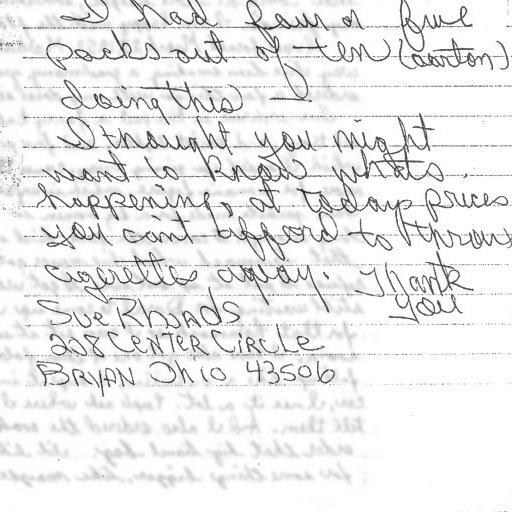 I had four or five
packs out of ten (carton)
doing this —
I thought you might
want to know whats
happening, at todays prices
you can't afford to throw
cigerettes away. Thank
You
Sue Rhoads
208 Center Circle
Bryan Ohio 43506